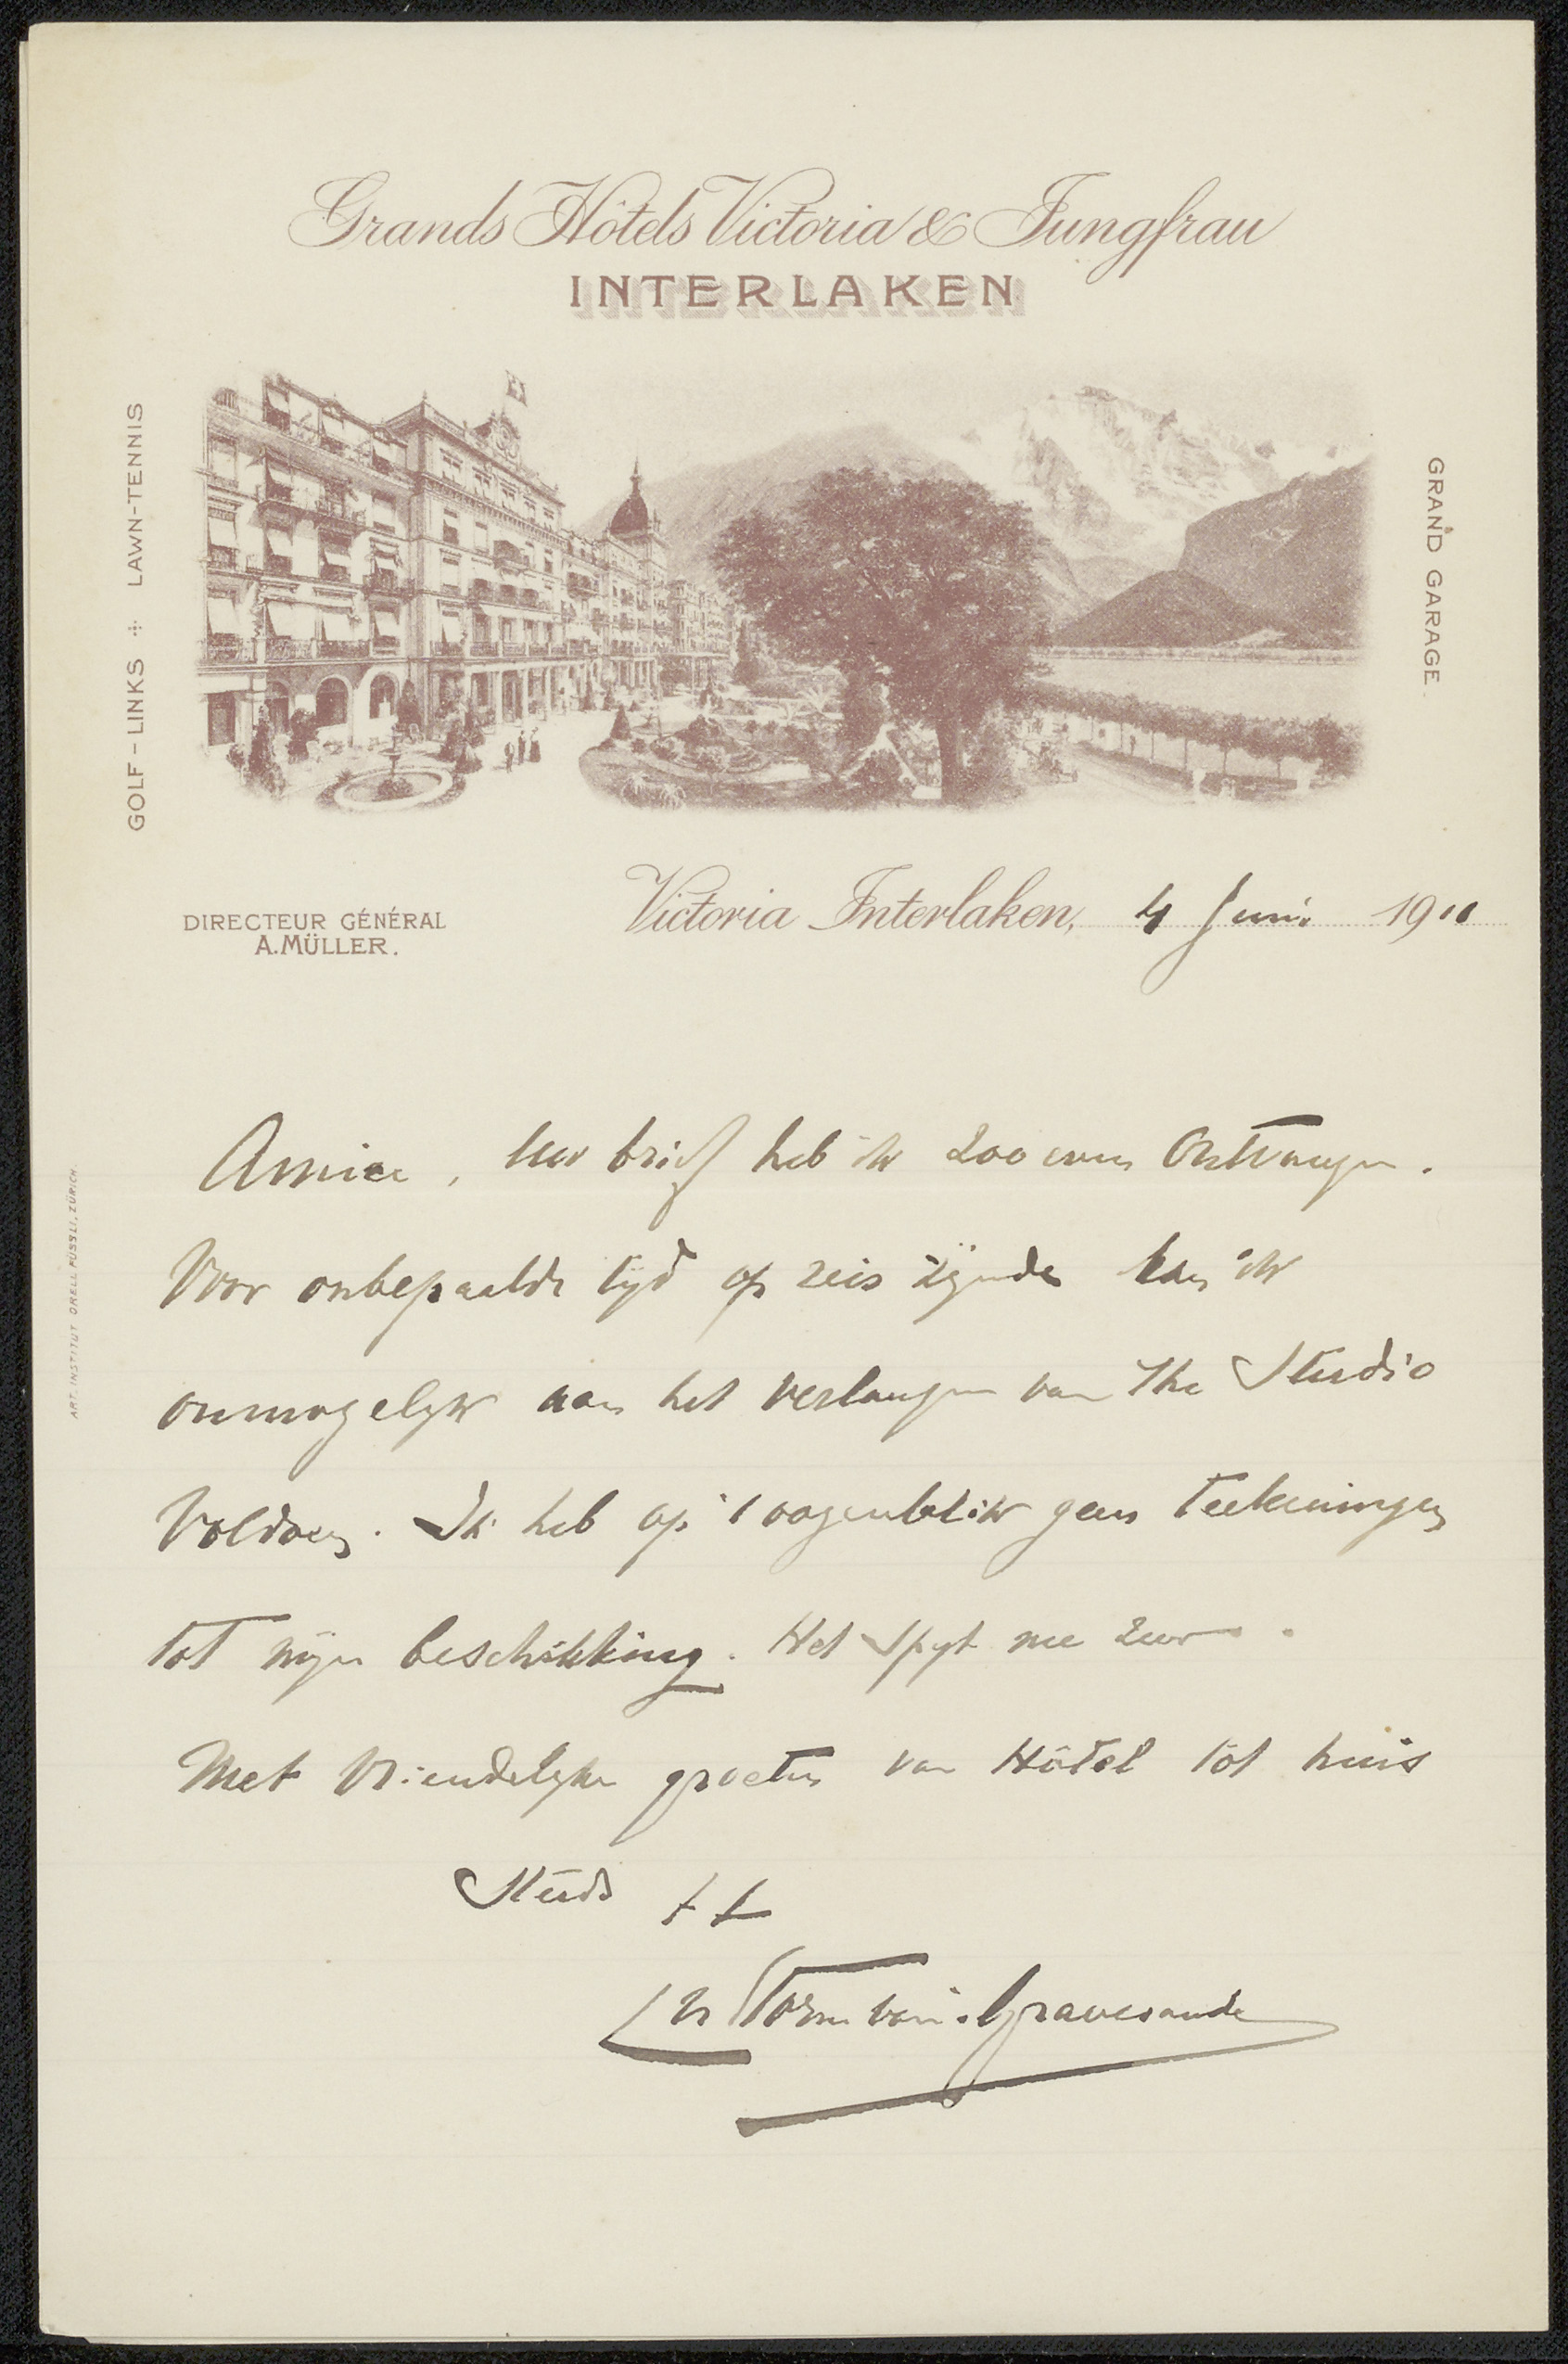 Grands Hôtels Victoria & Jungfrau
INTERLAKEN
GOLF-LINKS ÷ LAWN-TENNIS
GRAND GARAGE.
DIRECTEUR GÉNÉRAL
A. MÜLLER.
Victoria Interlaken, 4 Juni 1911
ART. INSTITUT ORELL FÜSSLI, ZÜRICH.
Amice, Uw brief heb ik zoo even ontvangen.
Voor onbepaalde tijd op reis zijnde kan ik
onmogelijk aan het verlangen van The Studio
voldoen. Ik heb op 't oogenblik geen teekeningen
tot mijn beschikking. Het spijt me zeer.
Met vriendelijke groeten van Hôtel tot huis
Steeds tt
Storm van 's Gravesande